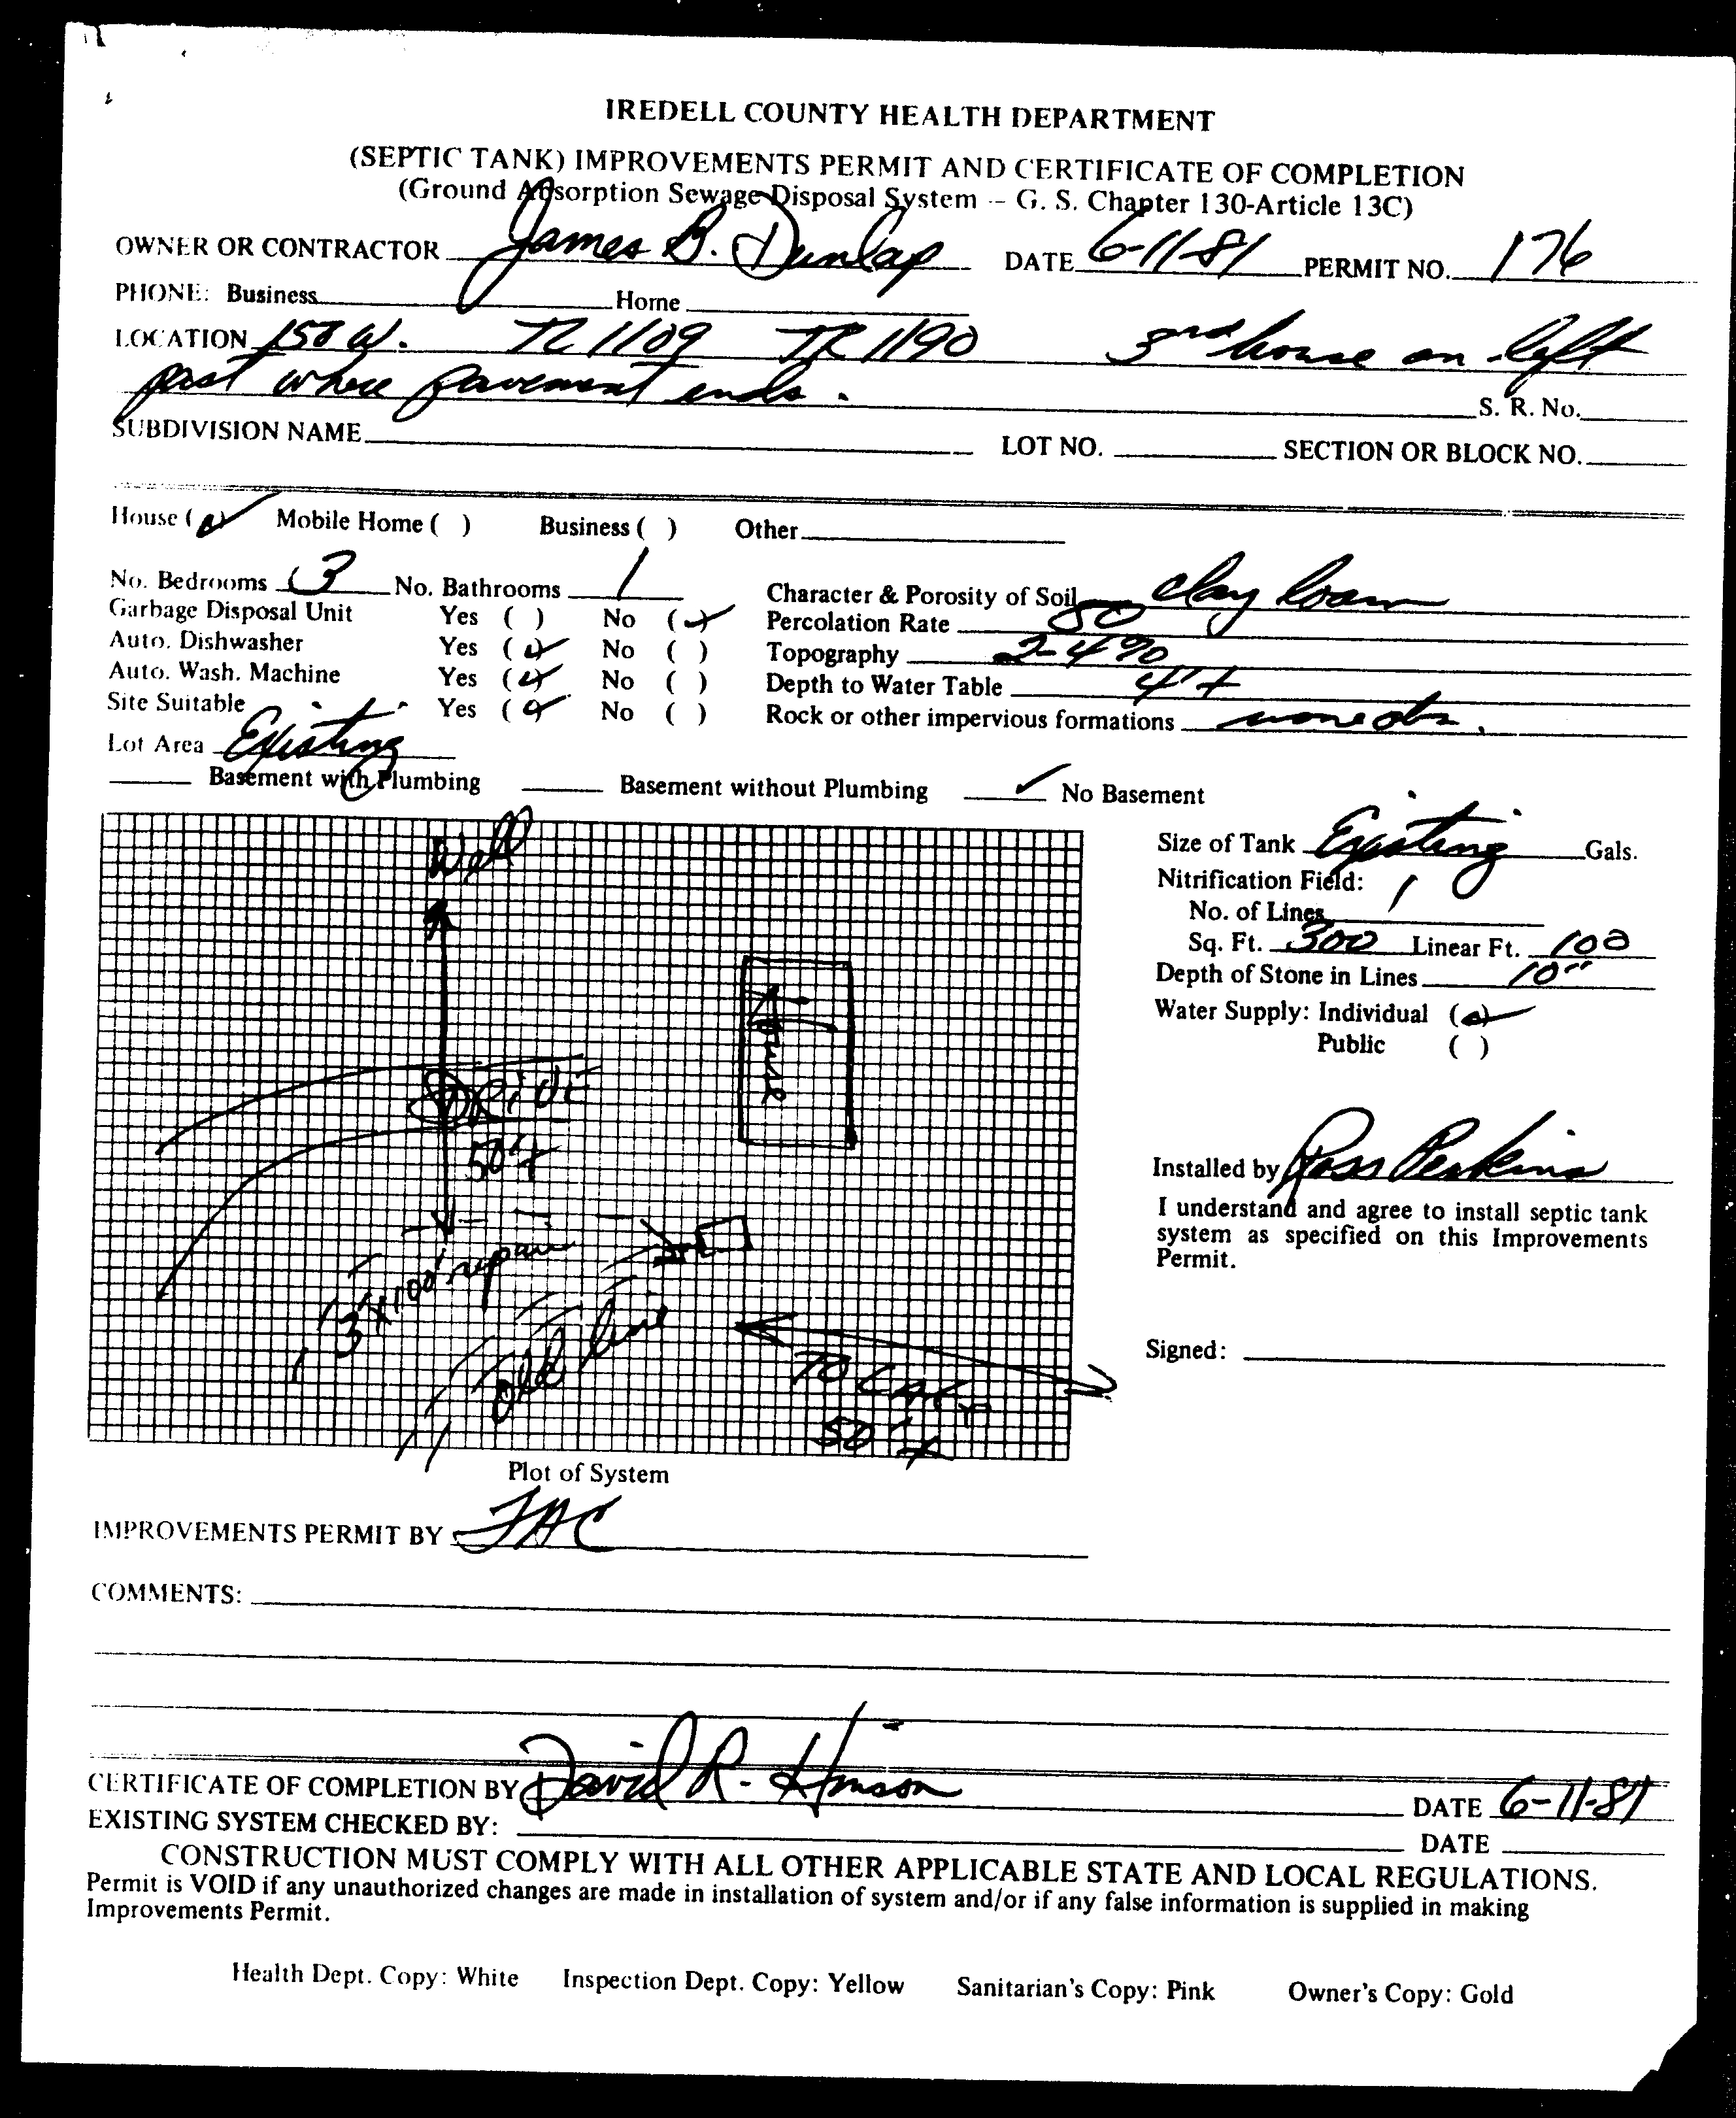 IREDELL COUNTY HEALTH DEPARTMENT
(SEPTIC TANK) IMPROVEMENTS PERMIT AND CERTIFICATE OF COMPLETION
(Ground Absorption Sewage Disposal System -- G. S. Chapter 130-Article 13C)
OWNER OR CONTRACTOR James B. Dunlap DATE 6-11-81 PERMIT NO. 176
PHONE: Business Home
LOCATION 150 W. TL 1109 TR 1190 3rd house on left
past where pavement ends. S. R. No.
SUBDIVISION NAME LOT NO. SECTION OR BLOCK NO.
House (✓) Mobile Home ( ) Business ( ) Other
No. Bedrooms 3 No. Bathrooms 1 Character & Porosity of Soil clay loam
Garbage Disposal Unit Yes ( ) No (✓) Percolation Rate 50
Auto. Dishwasher Yes (✓) No ( ) Topography 2-4%
Auto. Wash. Machine Yes (✓) No ( ) Depth to Water Table 4'+
Site Suitable Yes (✓) No ( ) Rock or other impervious formations none obs.
Lot Area Existing
Basement with Plumbing Basement without Plumbing ✓ No Basement
Well
House
DRIVE
50'+
3'x100' repair
old line
TO
50'+
Plot of System
Size of Tank Existing Gals.
Nitrification Field:
No. of Lines 1
Sq. Ft. 300 Linear Ft. 100
Depth of Stone in Lines 10"
Water Supply: Individual (✓)
Public ( )
Installed by Ross Perkins
I understand and agree to install septic tank
system as specified on this Improvements
Permit.
Signed:
IMPROVEMENTS PERMIT BY JAC
COMMENTS:
CERTIFICATE OF COMPLETION BY David R. Hinson DATE 6-11-81
EXISTING SYSTEM CHECKED BY: DATE
CONSTRUCTION MUST COMPLY WITH ALL OTHER APPLICABLE STATE AND LOCAL REGULATIONS.
Permit is VOID if any unauthorized changes are made in installation of system and/or if any false information is supplied in making
Improvements Permit.
Health Dept. Copy: White Inspection Dept. Copy: Yellow Sanitarian's Copy: Pink Owner's Copy: Gold